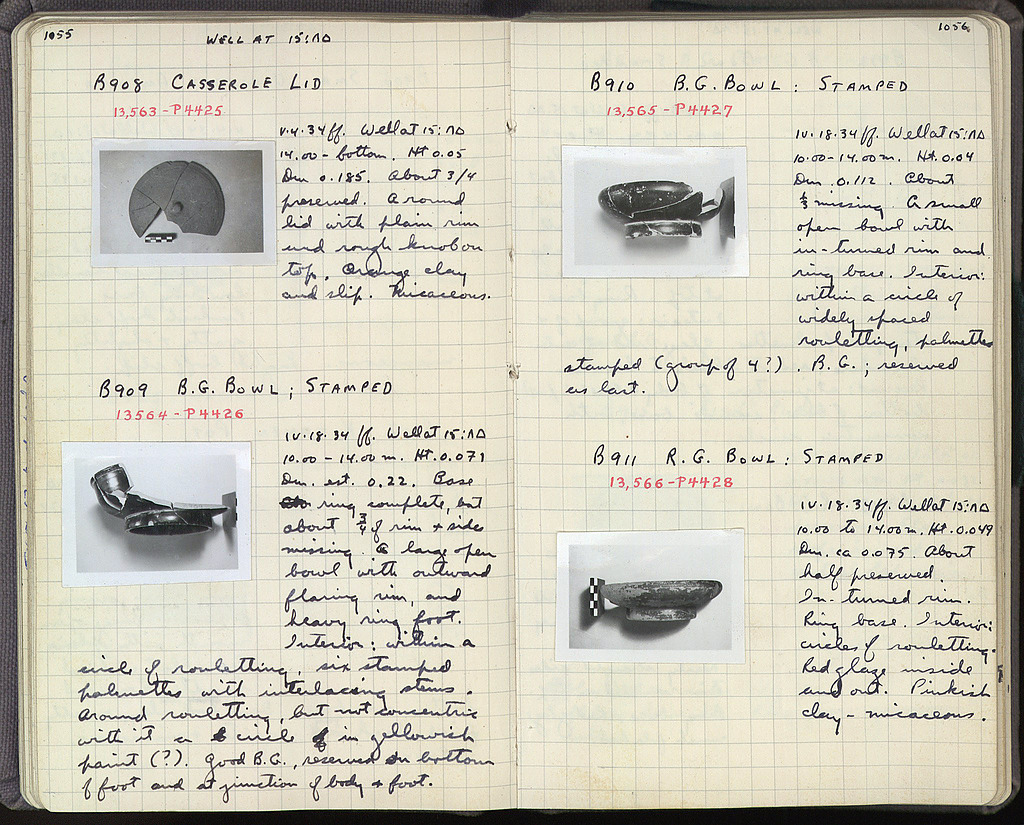 1055
WELL AT 15:ΛΔ
B908 CASSEROLE LID
13,563 - P4425
V.4.34 ff. Well at 15:ΛΔ
14.00 - bottom. Ht 0.05
Dm 0.185. About 3/4
preserved. A round
lid with plain rim
and rough knob on
top. Orange clay
and slip. Micaceous.
B909 B.G. BOWL ; STAMPED
13564 - P4426
IV.18.34 ff. Well at 15:ΛΔ
10.00 - 14.00 m. Ht. 0.071
Dm. est. 0.22. Base
ring complete, but
about 3/4 of rim + side
missing. A large open
bowl with outward
flaring rim, and
heavy ring foot.
Interior: within a
circle of rouletting, six stamped
palmettes with interlacing stems.
Around rouletting, but not concentric
with it a circle in yellowish
paint (?). Good B.G., reserved on bottom
of foot and at junction of body + foot.
1056
B910 B.G. BOWL : STAMPED
13,565 - P4427
IV.18.34 ff. Well at 15:ΛΔ
10.00 - 14.00 m. Ht. 0.04
Dm. 0.112. About
missing. A small
open bowl with
in-turned rim and
ring base. Interior:
within a circle of
widely spaced
rouletting, palmettes
stamped (group of 4?). B.G.; reserved
as last.
B911 R.G. BOWL : STAMPED
13,566 - P4428
IV.18.34 ff. Well at 15:ΛΔ
10.00 to 14.00 m. Ht. 0.049
Dm. ca 0.075. About
half preserved.
In-turned rim.
Ring base. Interior:
circles of rouletting.
Red glaze inside
and out. Pinkish
clay - micaceous.